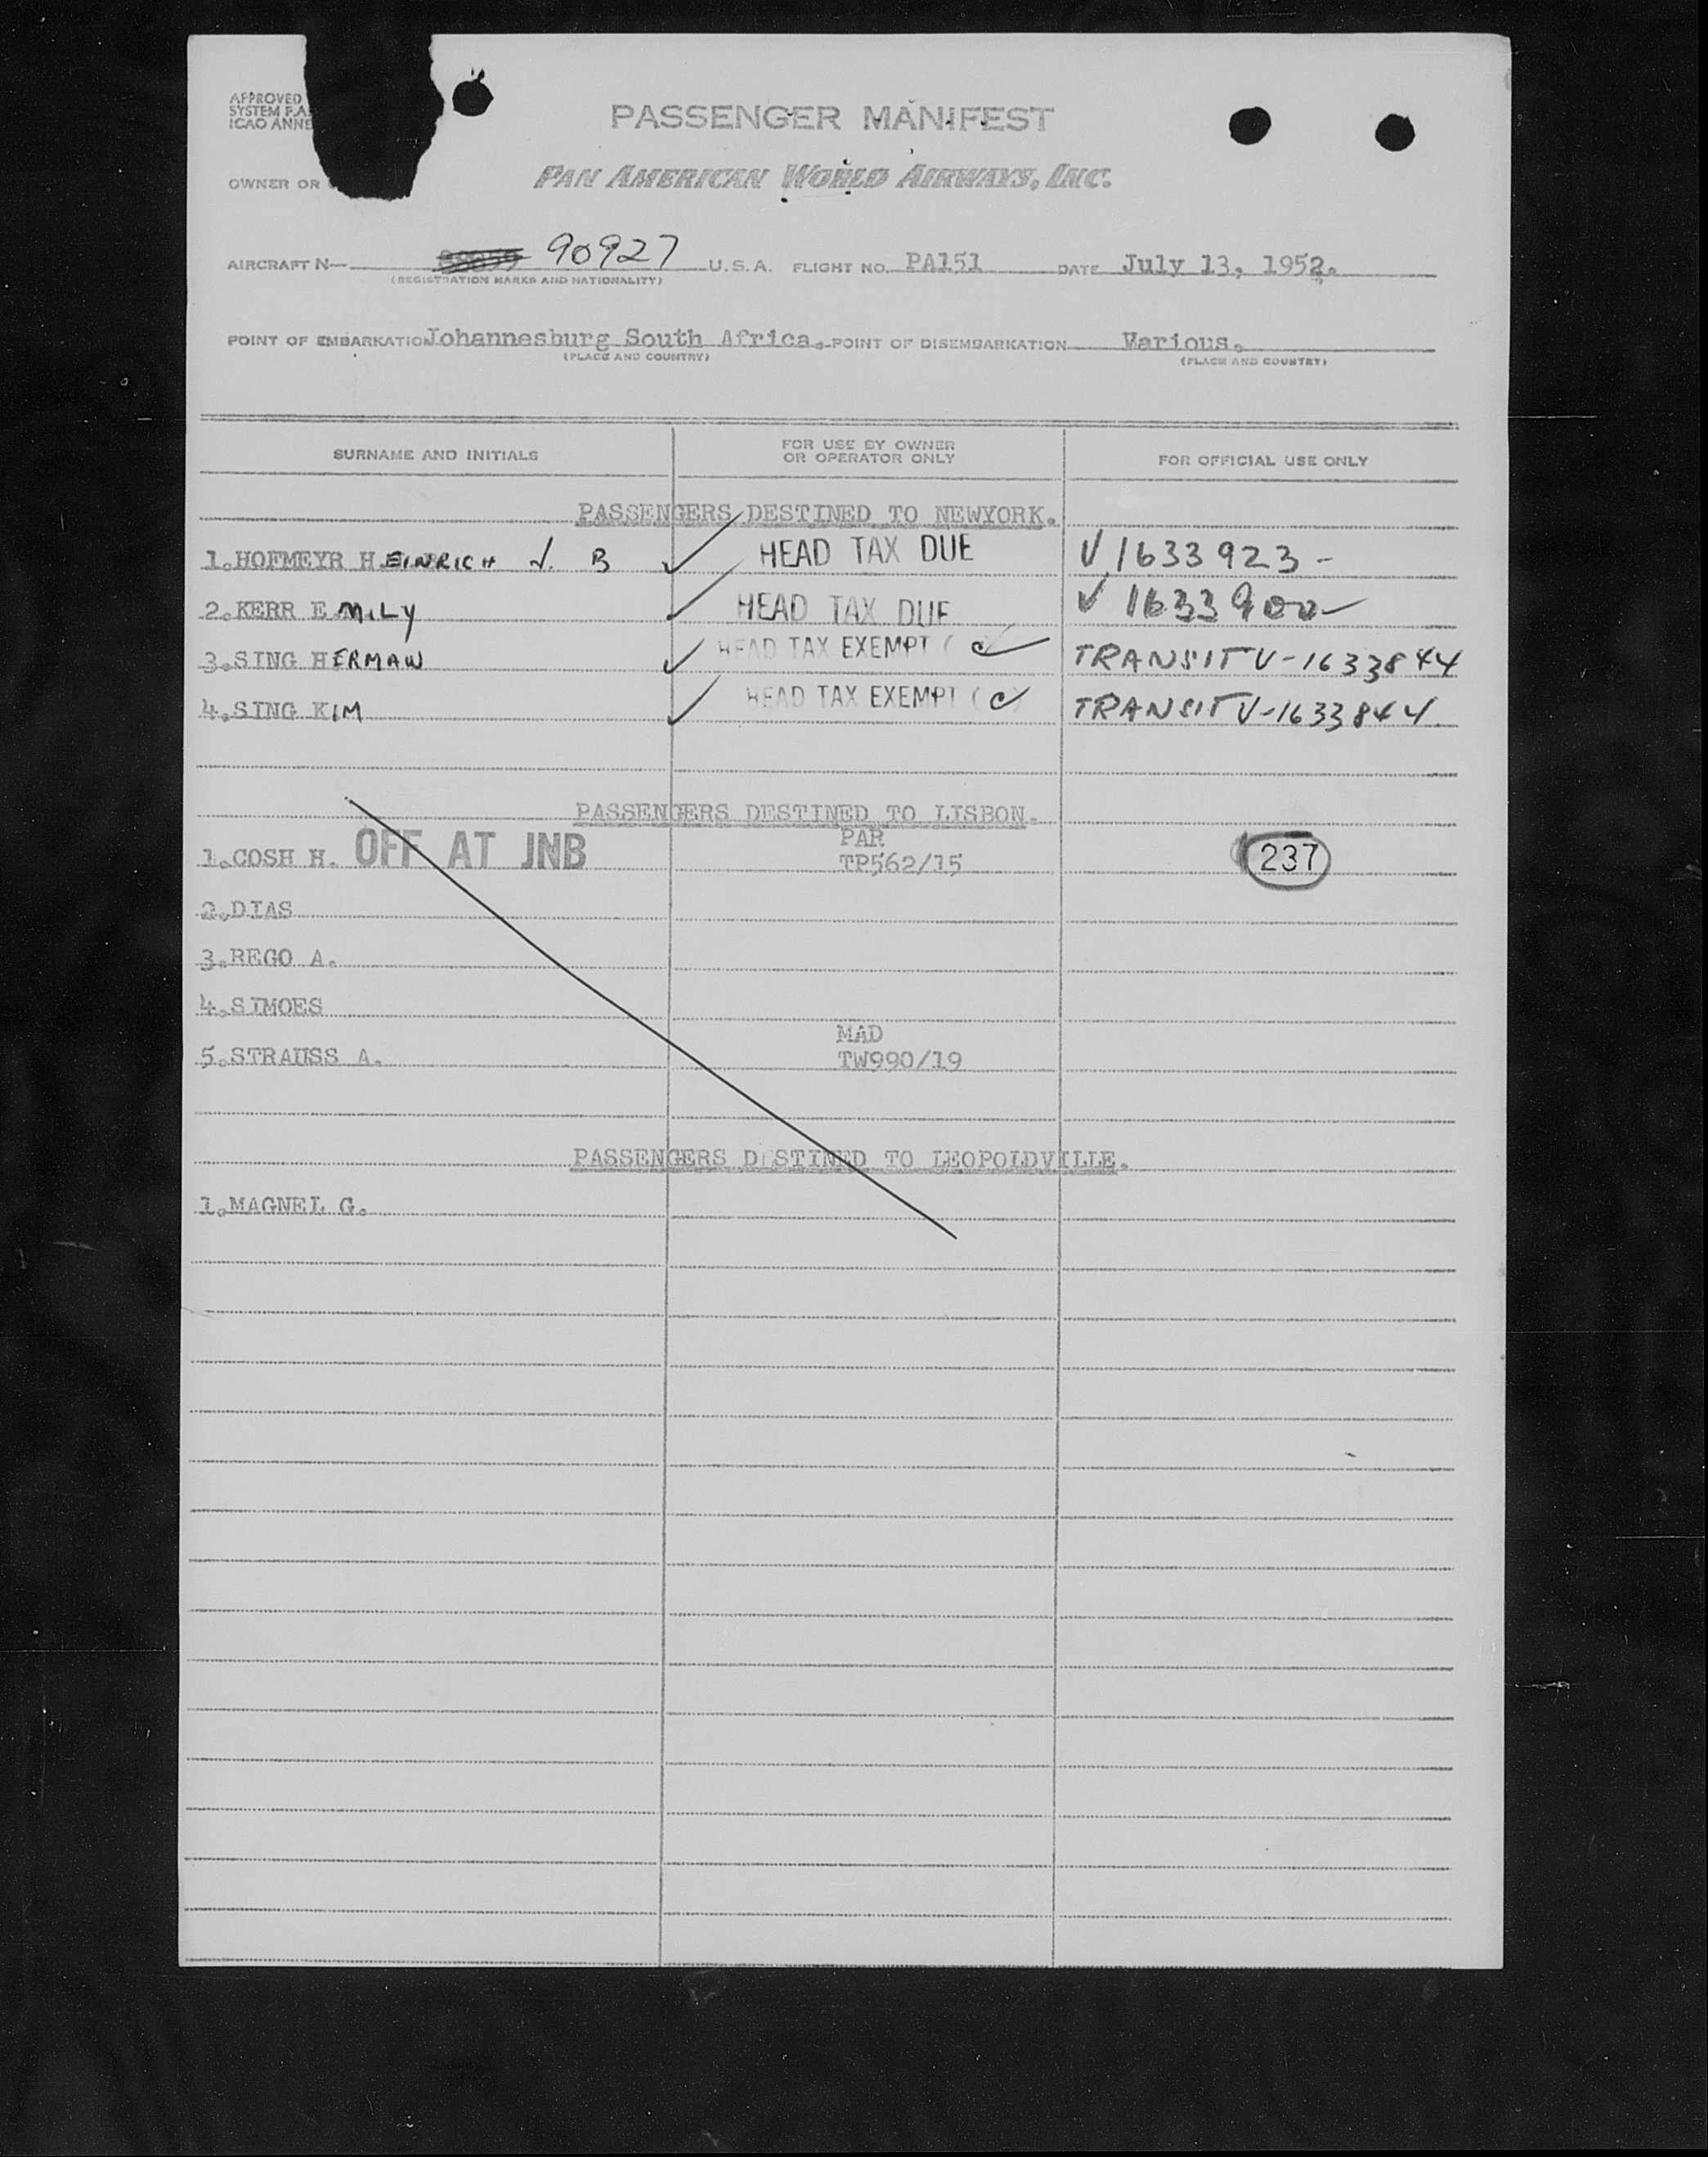 APPROVED
SYSTEM
ICAO ANNE
PASSENGER MANIFEST
OWNER OR
PAN AMERICAN WORLD AIRWAYS, INC.
AIRCRAFT N— 90927 U.S.A. FLIGHT NO. PA151 DATE July 13, 1952.
(REGISTRATION MARKS AND NATIONALITY)
POINT OF EMBARKATION Johannesburg South Africa. POINT OF DISEMBARKATION Various.
(PLACE AND COUNTRY) (PLACE AND COUNTRY)
SURNAME AND INITIALS FOR USE BY OWNER OR OPERATOR ONLY FOR OFFICIAL USE ONLY
PASSENGERS DESTINED TO NEWYORK.
1.HOFMEYR HEINRICH J. B ✓ HEAD TAX DUE V 1633923-
2.KERR EMILY ✓ HEAD TAX DUE V 1633900-
3.SING HERMAN ✓ HEAD TAX EXEMPT ( c TRANSIT V-1633844
4.SING KIM ✓ HEAD TAX EXEMPT ( c TRANSIT V-1633844
PASSENGERS DESTINED TO LISBON.
PAR
1.COSH H. OFF AT JNB TP562/15 237
2.DIAS
3.REGO A.
4.SIMOES
MAD
5.STRAUSS A. TW990/19
PASSENGERS DESTINED TO LEOPOLDVILLE.
1.MAGNEL G.